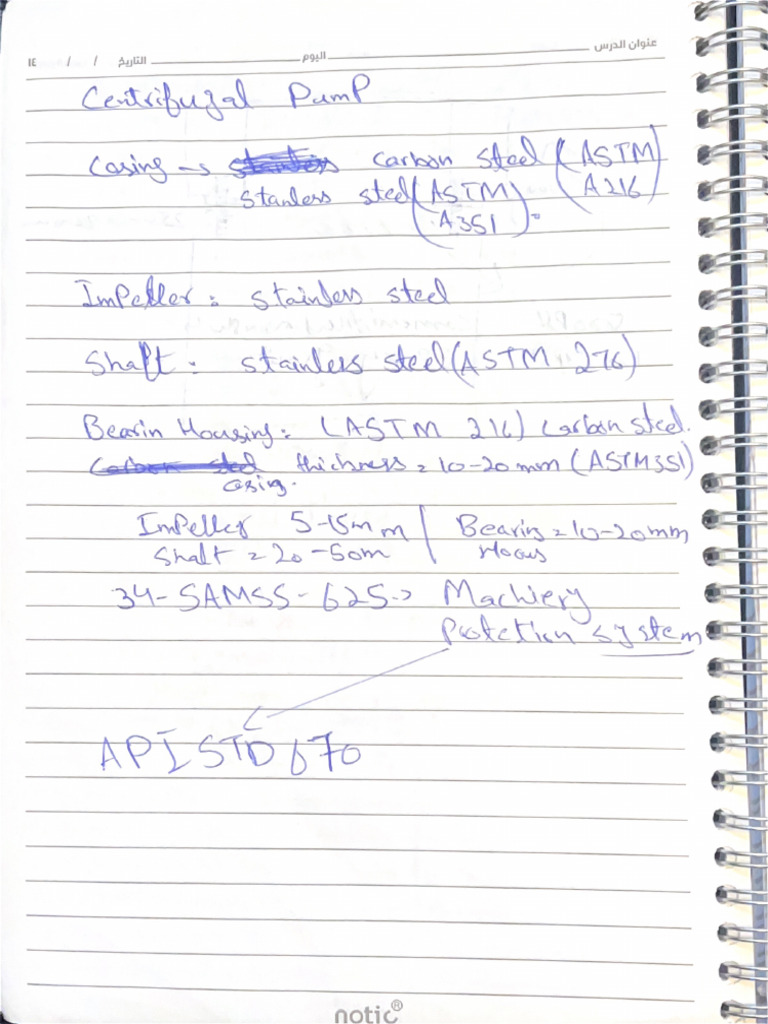 عنوان الدرس
اليوم
التاريخ / / ١٤
Centrifugal Pump
Casing → carbon steel (ASTM A216)
stanless steel (ASTM A351)
ImPeller : stainless steel
Shaft : stainless steel (ASTM 276)
Bearin Housing : (ASTM 216) Carbon steel.
thickness = 10-20 mm (ASTM 351)
casing.
ImPeller 5-15mm | Bearing = 10-20mm
Shaft = 20-50m | Hous
34-SAMSS-625 → Machinery
Protection system
API STD 670
notic®